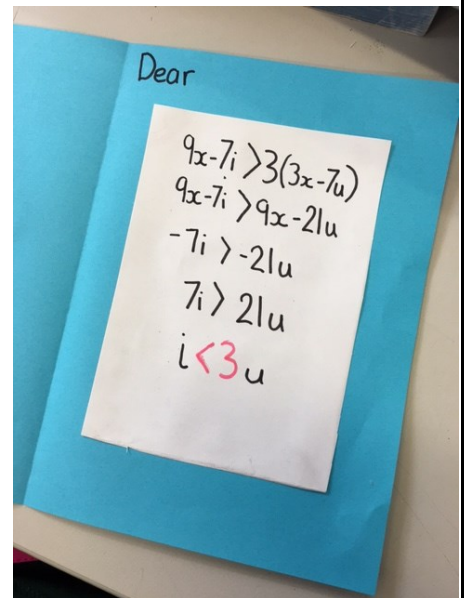 Dear
9x-7i>3(3x-7u)
9x-7i>9x-21u
-7i>-21u
7i>21u
i<3u